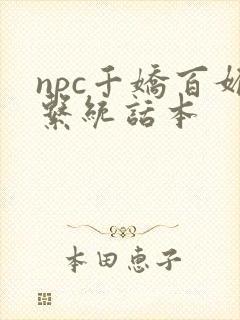 npc千嬌百媚
繫統話本
本田惠子